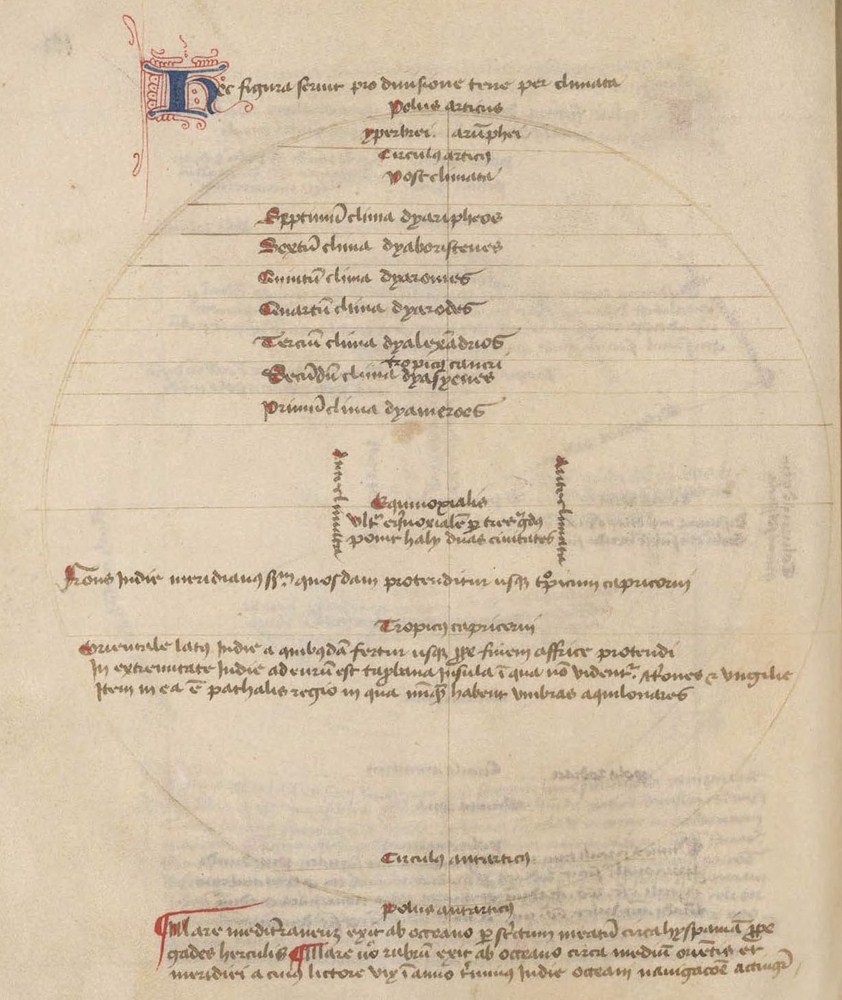 Hec figura seruit pro diuisione terre per climata
Polus articus
yperbrei. arūphei
Circulꝯ articꝯ
Post climata
Septimū clima dyaripheos
Sextū clima dyaboristenes
Quintū clima dyaromes
Quartū clima dyarodes
Terciū clima dyalexādrios
tropicꝯ cancri
Secūdū clima dyasyenes
Primū clima dyameroes
Ante climata
Ante climata
Equinoxialis
vltᵃ eq̄noxialē ꝑ tres g̃dꝯ
ponit haly duas ciuitates
Frons Indie meridianꝯ scd̄m quosdam protenditur usqꝫ tᵒpicum capricorni
Tropicꝯ capricorni
Orientale latꝯ Indie a quibꝯdā fertur usqꝫ ꝓpe finem affrice protendi
In extremitate Indie ad eurum est taprbana Insula ī qua nō videntᵘʳ ᷑tᵒones ⁊ virgilie
Item in ea ē pathalis regio in qua nūqᵃꝫ habent vmbras aquilonares
Circulꝯ antarticꝯ
Polus antarticꝯ
¶ Mare mediterraneuꝫ exit ab occeano ꝑ strictum meatū circa hyspaniā ꝓpe
gades herculis ¶ Mare uᵒ rubrū exit ab occeano circa mediū oriētis et
meridiei a cuiꝯ littore vix ī anno t̄minus Indie occeani nauigacōe actingit᷑